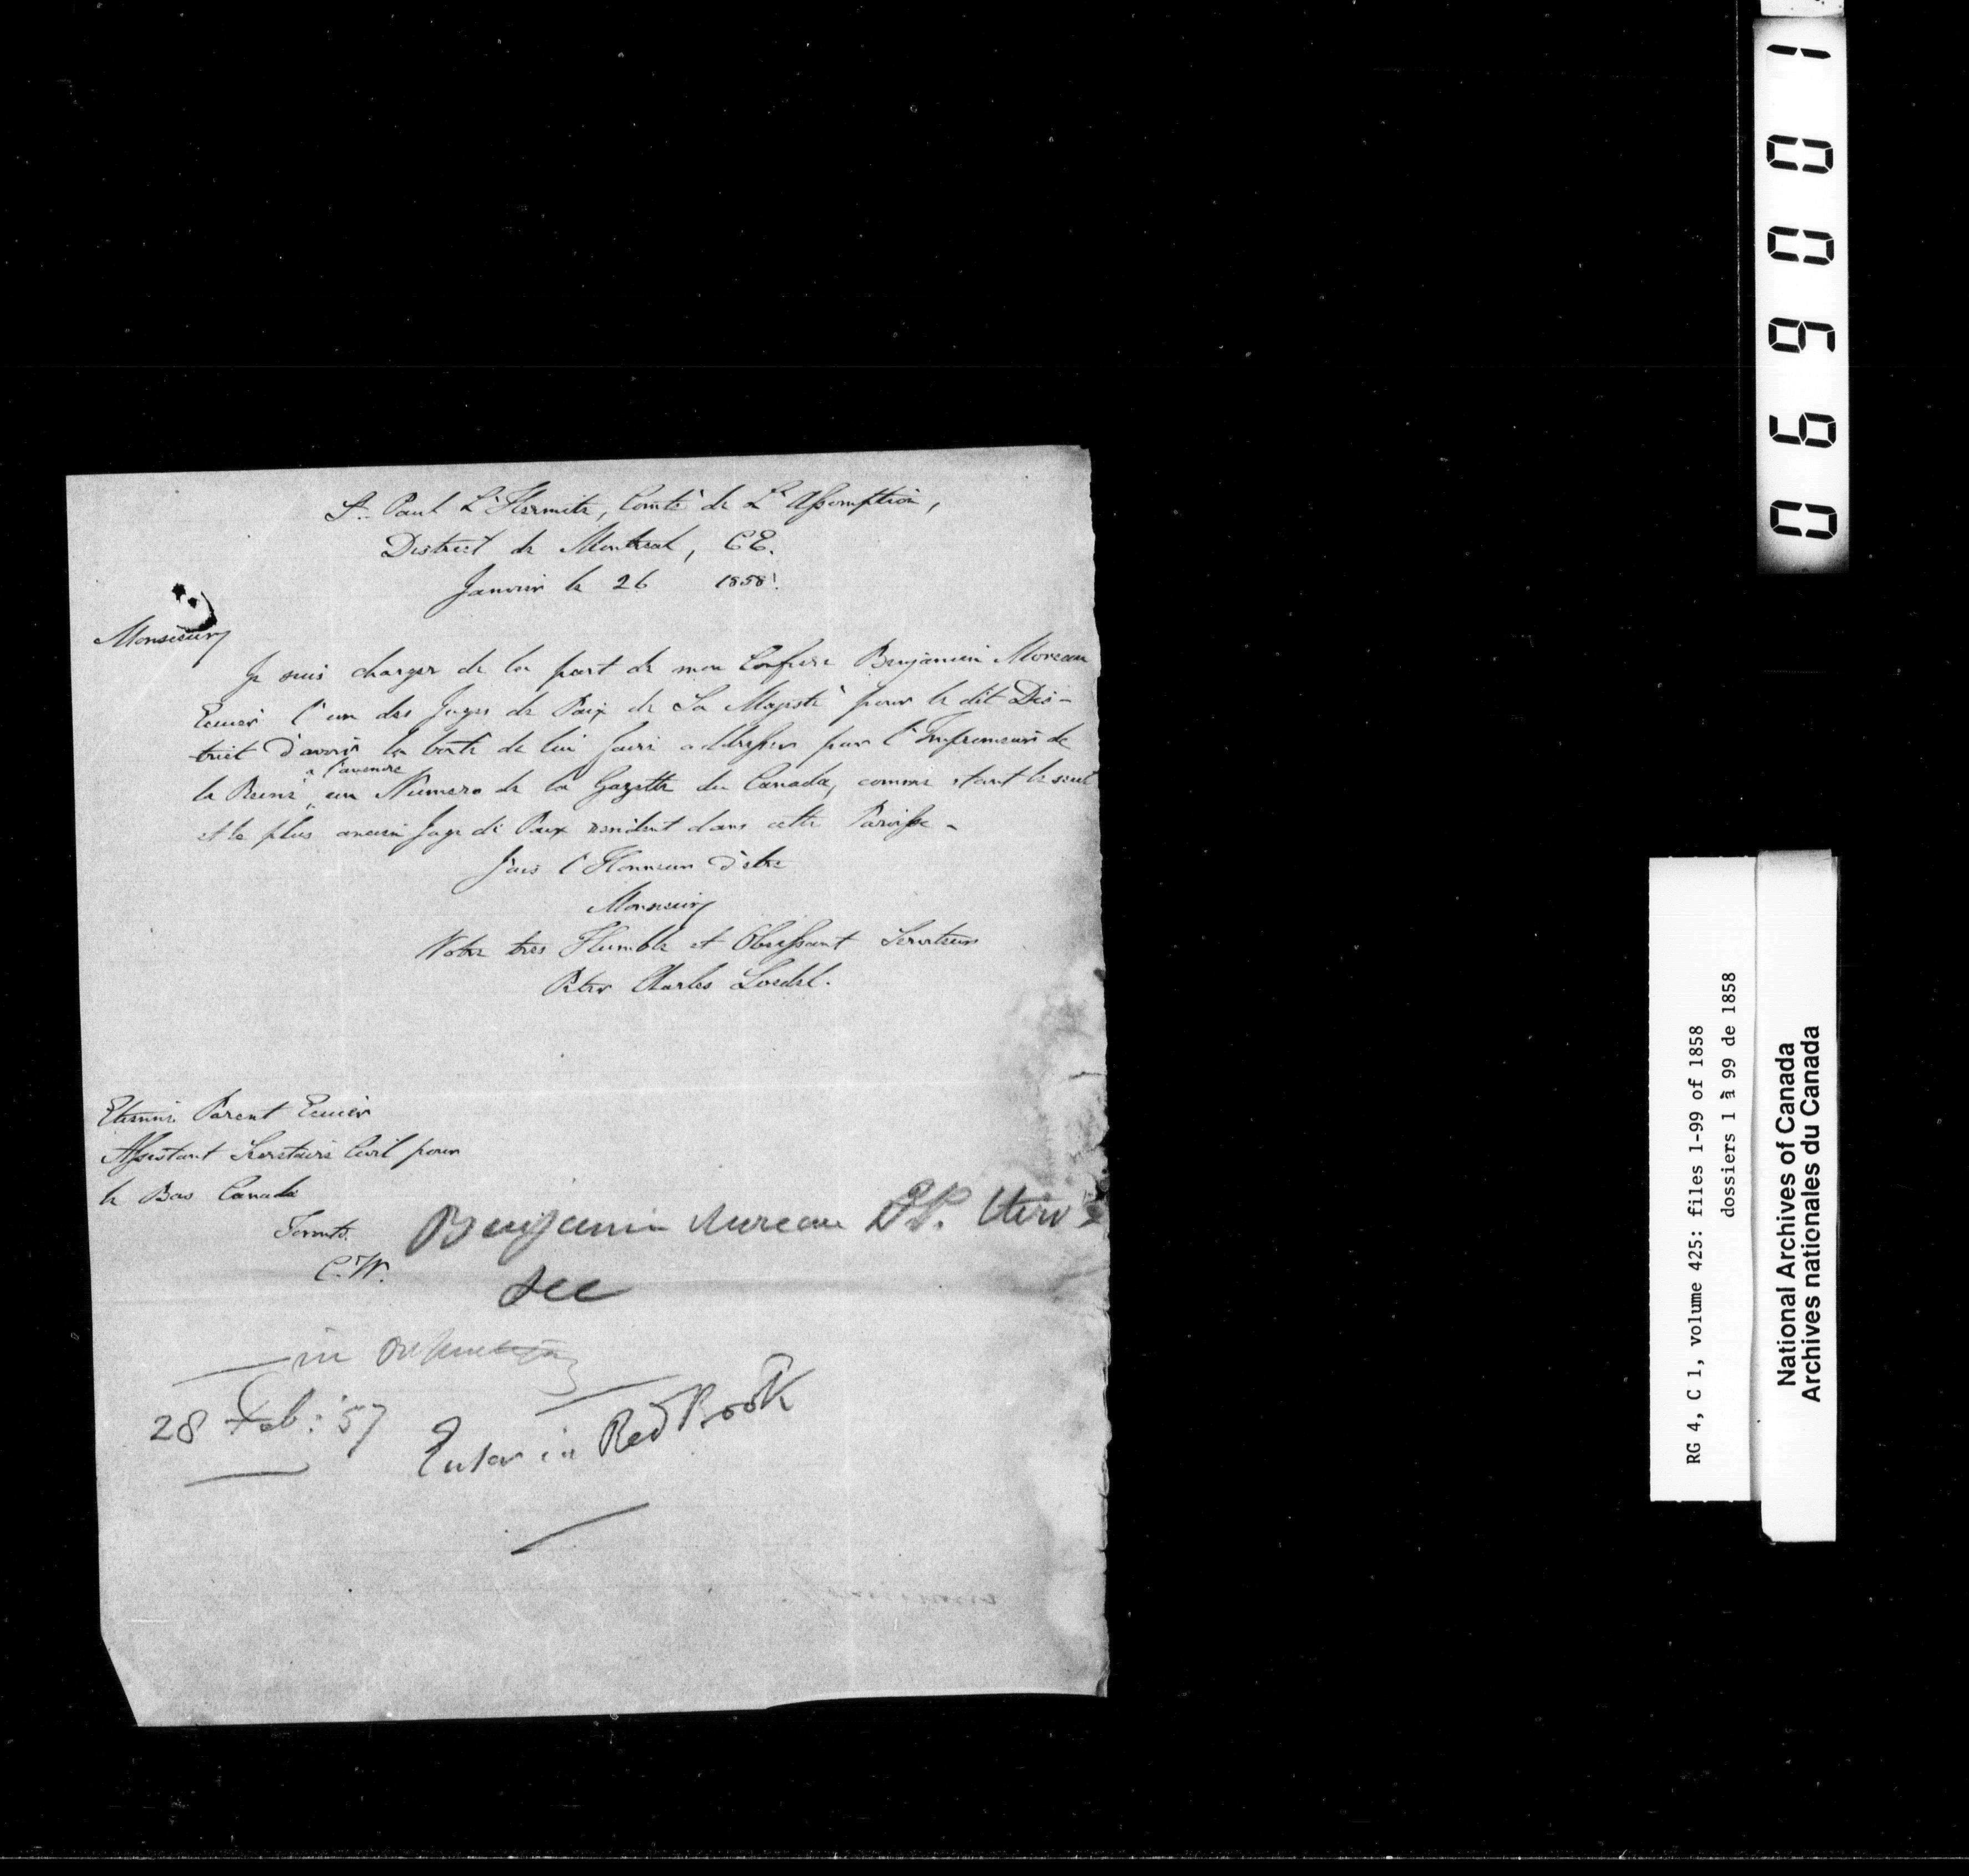 St. Paul L'Hermite, Comté de L'Assomption,
District de Montreal, C E.
Janvier le 26 1858.
Monsieur,
Je suis charger de la part de mon Confrere Benjamin Moreau
Ecuier l'un des Juges de Paix de Sa Majesté pour le dit Dis-
trict d'avoir la bonté de lui faire addresser par l'Imprimeur de
à l'avenire
la Reine un Numero de la Gazette du Canada, comme étant le seul
et le plus ancien Juge de Paix resident dans cette Paroisse -
J'ais l'Honneur d'etre
Monsieur,
Votre tres Humble et Obeissant Serviteur
Peter Charles Loedel.
Etienne Parent Ecuier
Assistant Secretaire Civil pour
le Bas Canada
Toronto.
C. W.
Benjamin Mureau J.P.
see
in
28 Feb: '57 Enter in Red Book
RG 4, C 1, volume 425: files 1-99 of 1858
dossiers 1 à 99 de 1858
National Archives of Canada
Archives nationales du Canada
069001